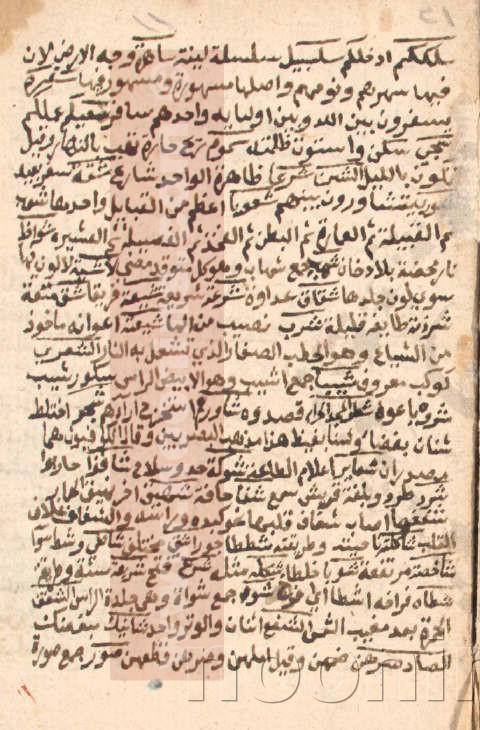 سلككم ادخلكم سلسبيل سلسلة لينة ساهرة وجه الارض لان
فيها سهرهم ونومهم واصلها مسهورة ومسهور فيها سفرة
يسفرون بين الله وبين اوليايه واحدهم سافر سعيكم عملكم
سجى سكن واستوى ظلمته سموم ريح حارة تهب بالنهار وقيل
تكون بالليل الشين شرعا ظاهرة الواحد شارع شقة سفر بعيد
شورى يتشاورون بينهم شعوبا اعظم من القبايل واحدها شعب
ثم القبيلة ثم العمارة ثم البطن ثم الفخذ ثم الفصيلة ثم العشيرة شواظ
نار محضة بلا دخان شهب جمع شهاب وهو كل متوقد مضى لاشية لا لون فيها
سوى لون جلدها شقاق عداوة شرعة شريعة شيعة فريقا شق مشقة
شرذمة طايفة قليلة شرب نصيب من الما شيعته اعوانه ماخوذ
من الشياع وهو الحطب الصغار الذي تشعل به النار الشعرى
كوكب معروف شيبا جمع اشيب وهو الابيض الراس شكور يثيب
شروه باعوه شطر قصده شاورهم استخرج اراءهم شجر اختلط
شنان بغضا هذا مذهب البصريين وقال الكوفيون هما
مصدران شعاير اعلام الطاعة شوكة حد وسلاح شاقوا حاربوا
شرد طرد وبلغة قريش سمع شفا حافة شهيق اخر نهيق الحمار
شغفها اصاب شغاف قلبها والشغاف غلاف
القلب شاكلته ناحيته وطريقته شططا جورا شتى مختلف شاطئ وشط سوا
شاخصة مرتفعة شوبا خلطا شكله مثله شرع فتح شرعة سنة وطريقة
شطاه فراخه شوى جمع شواة وهي جلدة الراس الشفق
الحمرة بعد مغيب الشمس الشفع اثنان والوتر واحد شانيك مبغضك
الصاد صرهن ضمهن وقيل املهن وصرهن قطعهن صور جمع صورة